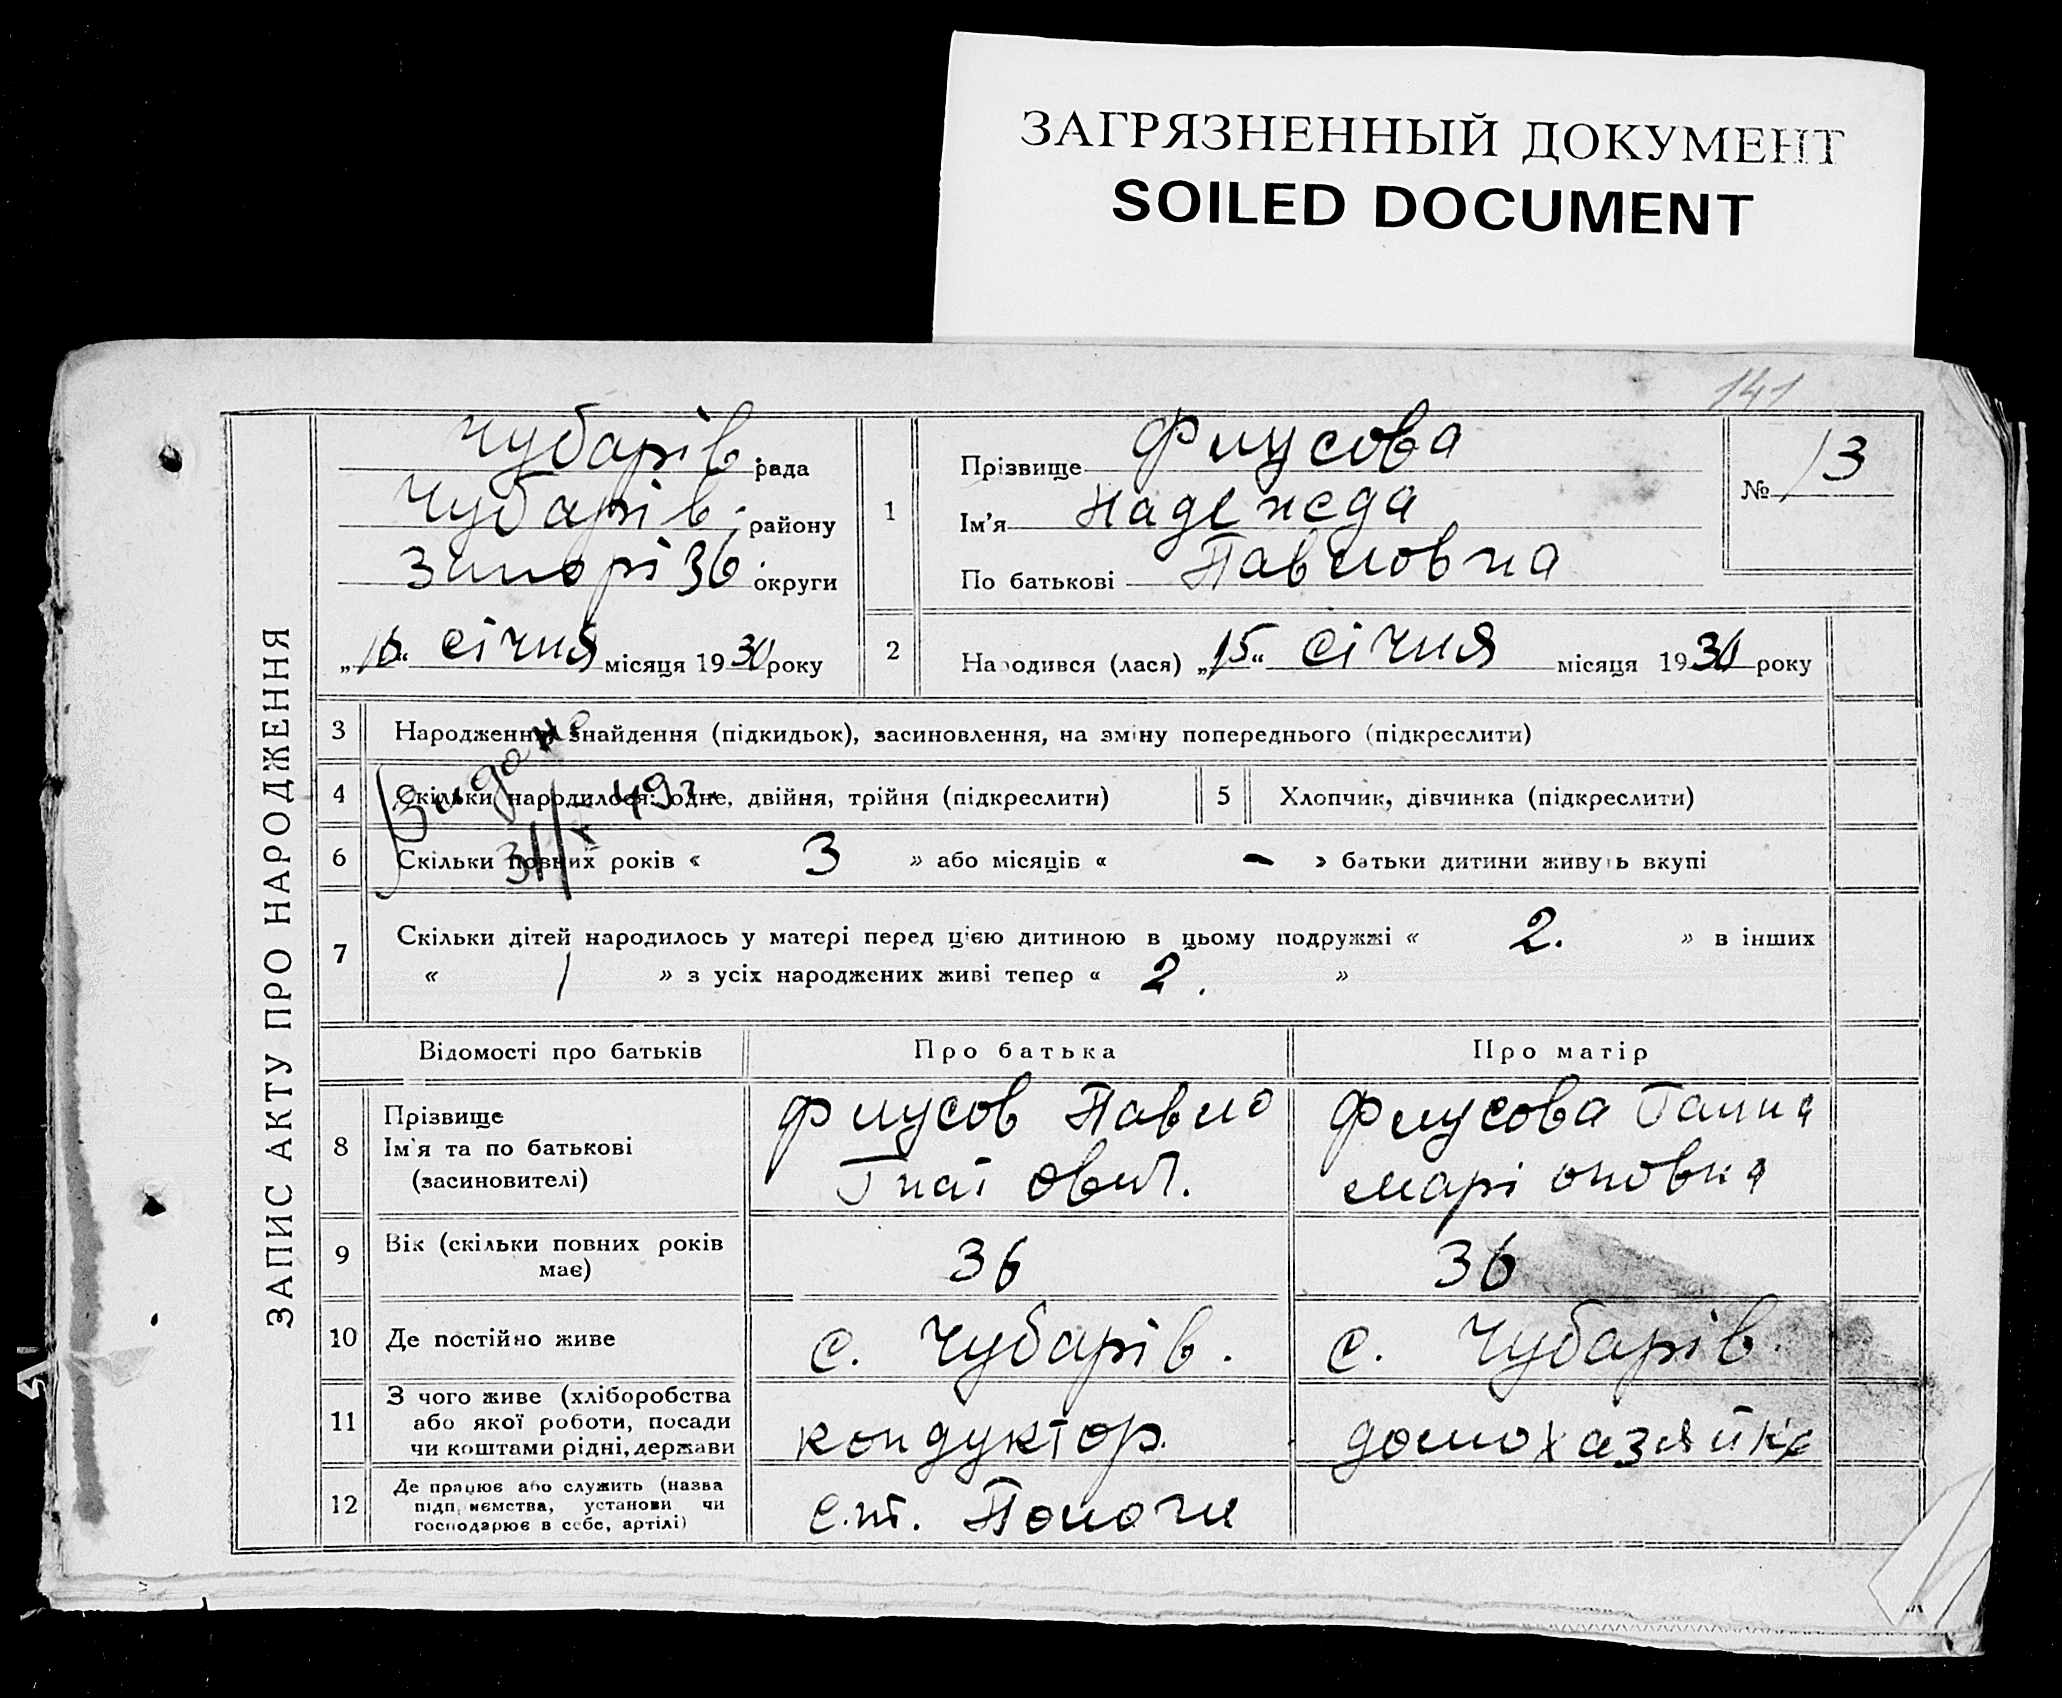 ЗАГРЯЗНЕННЫЙ ДОКУМЕНТ
SOILED DOCUMENT
141
ЗАПИС АКТУ ПРО НАРОДЖЕННЯ
Чубарів. рада
Чубарів. району
Запоріз. округи
„16“ січня місяця 1930 року
1 Прізвище Флусова
Ім'я Надежда
По батькові Павловна
№ 13
2 Народився (лася) „15“ січня місяця 1930 року
3 Народження, знайдення (підкидьок), засиновлення, на зміну попереднього (підкреслити)
4 Скільки народилося: одне, двійня, трійня (підкреслити) 5 Хлопчик, дівчинка (підкреслити)
6 Скільки повних років « 3 » або місяців « - » батьки дитини живуть вкупі
7 Скільки дітей народилось у матері перед цією дитиною в цьому подружжі « 2. » в інших
« 1 » з усіх народжених живі тепер « 2. »
Відомості про батьків Про батька Про матір
8 Прізвище
Ім'я та по батькові
(засиновителі)
Флусов Павло
Гнатович.
Флусова Ганна
Маріоновна
9 Вік (скільки повних років має) 36 36
10 Де постійно живе с. Чубарів. с. Чубарів.
11 З чого живе (хліборобства
або якої роботи, посади
чи коштами рідні, держави
кондуктор. домохазяйка
12 Де працює або служить (назва
підприємства, установи чи
господарює в себе, артілі)
с.т. Пологи